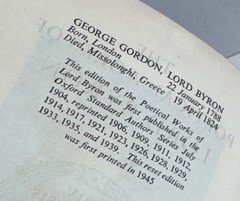 GEORGE GORDON, LORD BYRON
Born, London 22 January 1788
Died, Missolonghi, Greece 19 April 1824
This edition of the Poetical Works of
Lord Byron was first published in the
Oxford Standard Authors Series July
1904, reprinted 1906, 1909, 1911, 1912,
1914, 1917, 1921, 1923, 1926, 1928, 1929,
1933, 1935, and 1939. This reset edition
was first printed in 1945